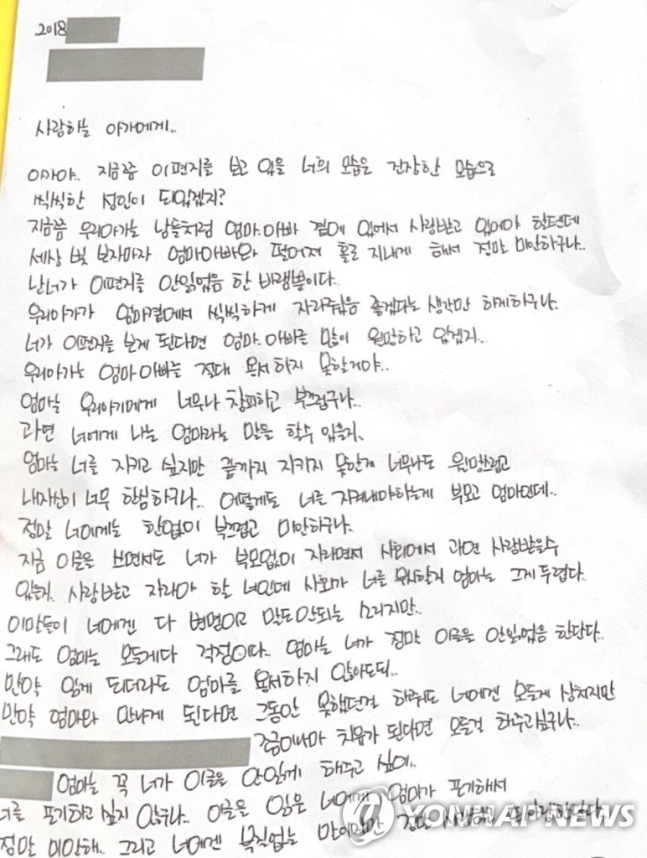 2018
사랑하는 아가에게..
아가야. 지금쯤 이편지를 보고 있을 너의 모습은 건장한 모습으로
씩씩한 성인이 되있겠지?
지금쯤 우리아가는 남들처럼 엄마.아빠 곁에 있에서 사랑받고 있어야 할텐데
세상 빛 보자마자 엄마아빠와 떨어져 홀로 지내게 해서 정말 미안하구나..
난너가 이편지를 안읽었음 한 바램뿐이다.
우리아가가 엄마곁에서 씩씩하게 자라줬음 좋겠다는 생각만 하게하구나.
너가 이편지를 보게 된다면 엄마.아빠를 많이 원망하고 있겠지..
우리아가는 엄마아빠를 절대 용서하지 못할거야..
엄마는 우리아기에게 너무나 창피하고 부끄럽구나..
과연 너에게 나는 엄마라는 말을 할수 있을지.
엄마는 너를 지키고 싶지만 끝까지 지키지 못한게 너무나도 원망스럽고
내자신이 너무 한심하구나.. 어떻게든 너를 지켜내야하는게 부모고 엄마인데..
정말 너에게는 한없이 부끄럽고 미안하구나.
지금 이글을 보면서도 너가 부모없이 자라면서 사회에서 과연 사랑받을수
있을지. 사랑받고 자라야 할 너인데 사회가 너를 뭐라할지 엄마는 그게 두렵다.
이말들이 너에겐 다 변명이고 말도안되는 소리지만..
그래도 엄마는 모든게다 걱정이다. 엄마는 너가 정말 이글을 안읽었음 한단다..
만약 읽게 되더라도 엄마를 용서하지 않아도되..
만약 엄마와 만나게 된다면 그동안 못했던걸 해줘도 너에겐 모든게 상처지만
조금이나마 치유가 된다면 모든걸 해주고싶구나..
엄마는 꼭 너가 이글을 안읽게 해주고 싶어..
너를 포기하고 싶지 않구나. 이글을 읽은 너에게 엄마가 포기해서
정말 미안해. 그리고 너에겐 부질없는 말이지만 정말 사랑해
YONHAP NEWS